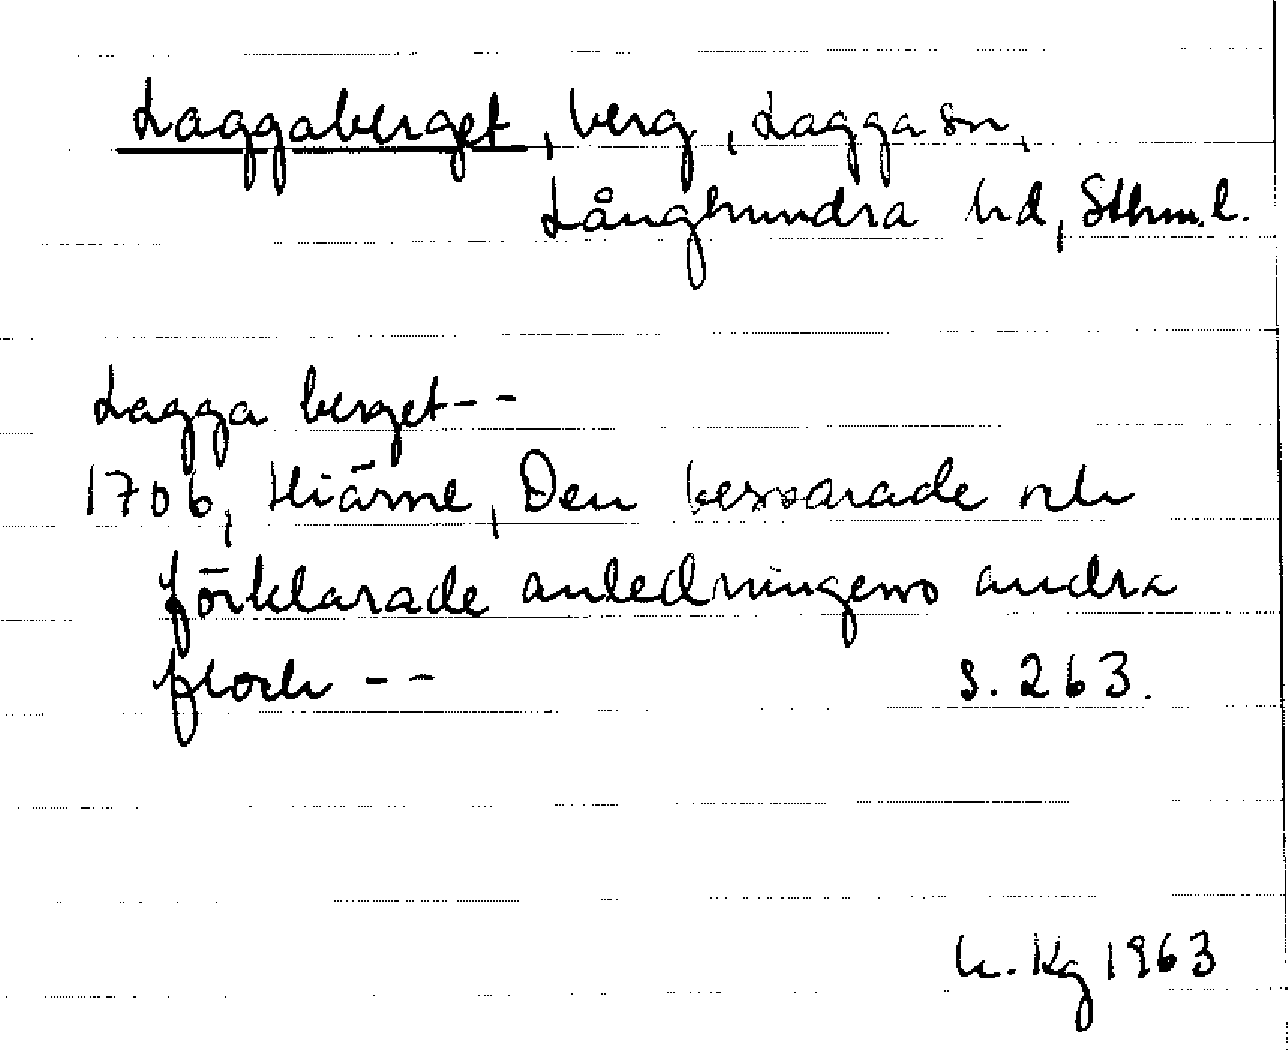 Laggaberget, berg, Lagga sn,
Långhundra hd, Sthm. l.
Lagga berget--
1706, Hiärne, Den besvarade och
förklarade anledningens andra
flock -- s. 263.
h. Kg 1963